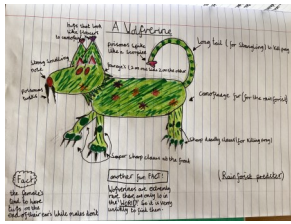 A Wolferine
bits that look
like flowers
to camouflage
poisonus spike
like a
Long tail (for strangling) to kill prey
Strong smelling
nose
poisonus
Camouflage fur (for the rainforest)
Sharp deadly claws (for killing prey)
Super sharp claws at the front
(Rainforest predator)
Fact
the female's
tend to have
bits on the
end of their ears while males don't
another fun FACT!
Wolferines are extremly
rare there are only 10 in
the WORLD! So it is very
unlikely to find them.